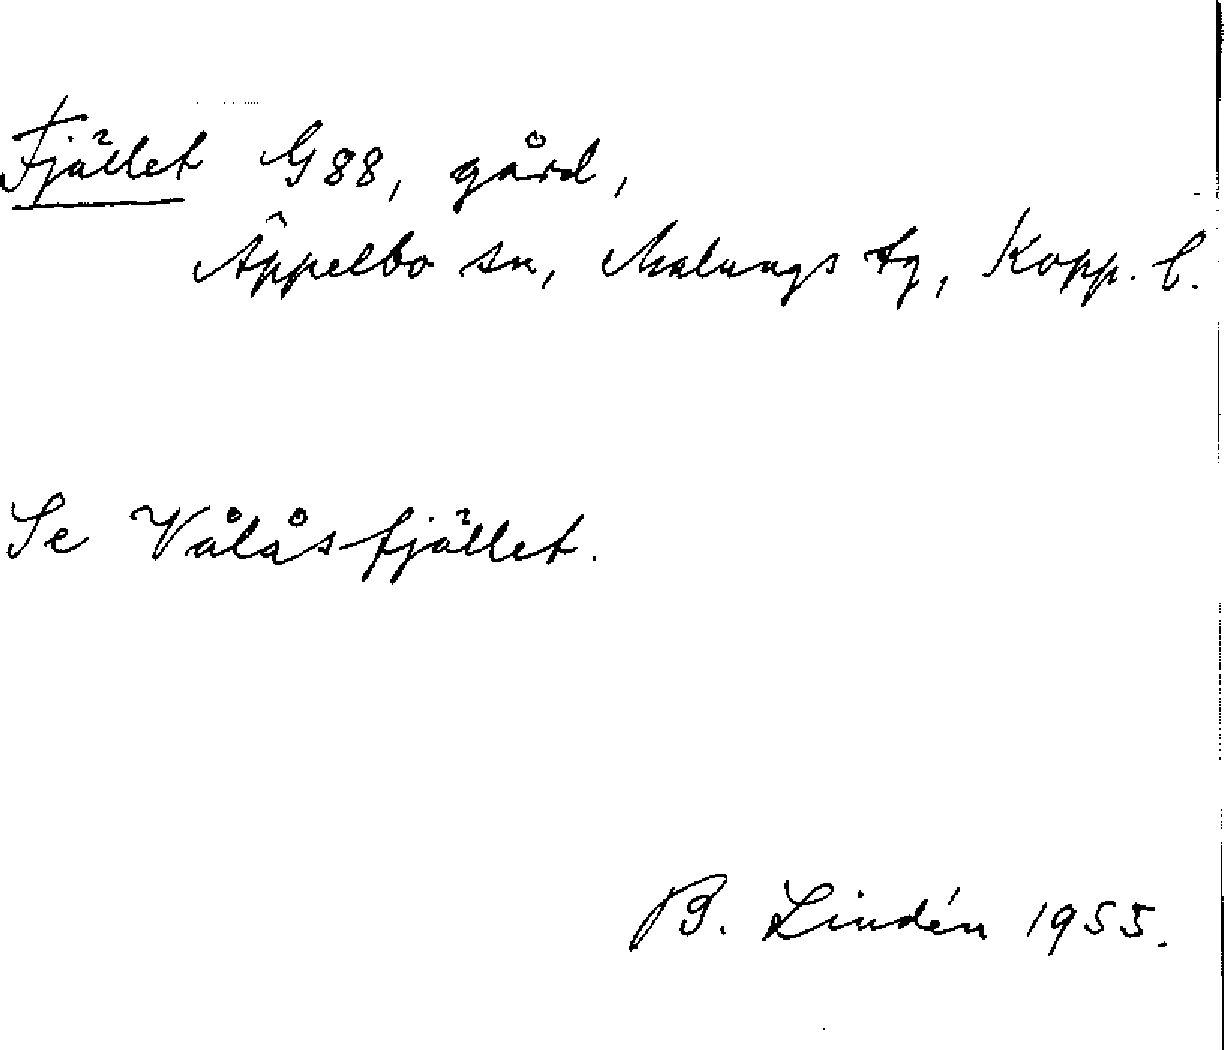 Fjället G88, gård,
Äppelbo sn, Malungs tg, Kopp. l.
Se Vålåsfjället.
B. Lindén 1955.